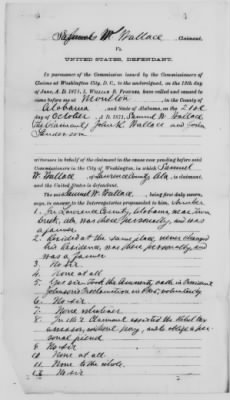 Samuel W Wallace, Claimant,
Vs.
UNITED STATES, DEFENDANT.
In pursuance of the Commission issued by the Commissioners of
Claims at Washington City, D. C., to the undersigned, on the 19th day
of June, A. D. 1871, I, have called and caused to
come before me at Moulton, in the County of
Alabama and State of Alabama, on the 21st
of October, A. D. 1871, Samuel W. Wallace
The Claimant, John R. Wallace and John
WITNESSES in behalf of the Claimant in the cause now pending before said
Commissioners in the City of Washington, in which Samuel
W. Wallace of Lawrence County Ala, is claimant,
and the United States is defendant.
The said Samuel W. Wallace, being first duly sworn,
says, in answer to Interrogatories propounded to him
1. In Lawrence County, Alabama near Town
Creek, was there personally, and was
a farmer
2. Resided at the same place never changed
his Residence, was there personally, and
was a farmer
3. No sir
4. None at all
5. Yes sir took the Amnesty oath in President
Johnson's Proclamation in 1865, voluntarily
6. No sir
7. None whatever
8. Claimant assisted the Rebel
without pay, and to oblige a per-
sonal friend
9. No sir
10. None at all
11. None to the whole
12. No sir